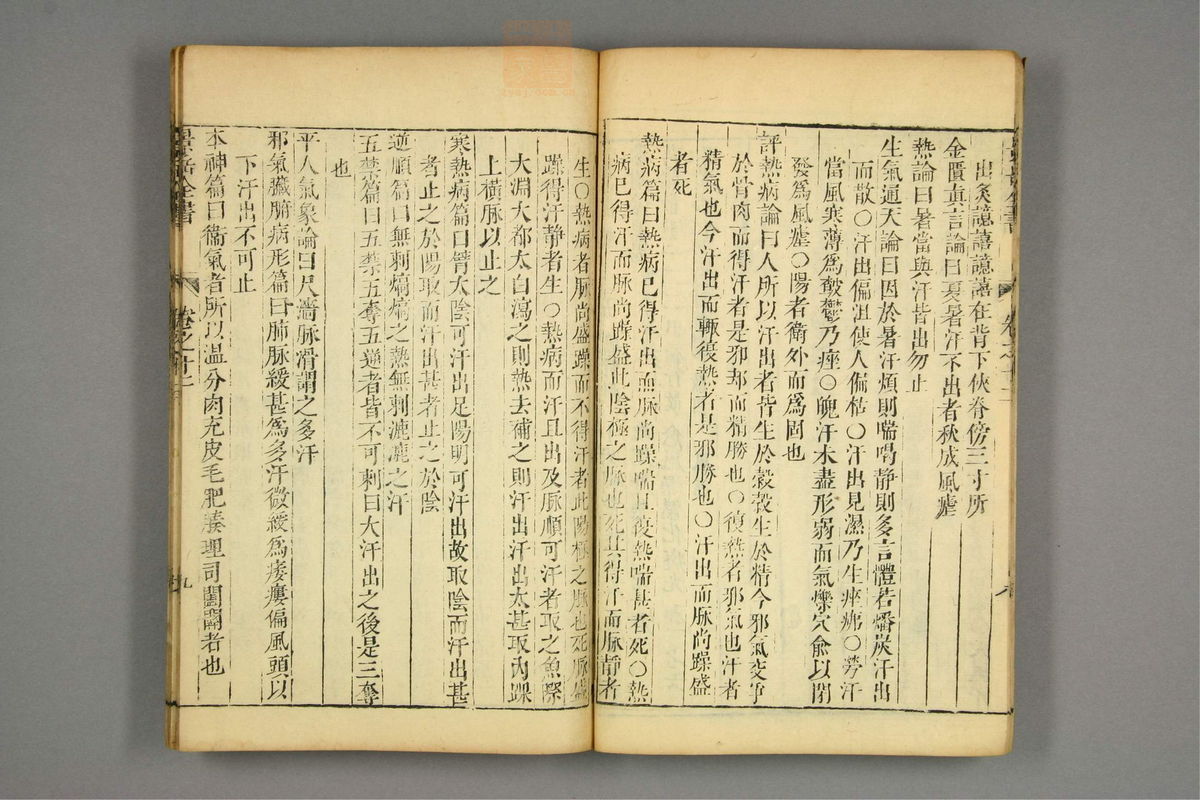 出灸譩譆譩譆在背下俠脊傍三寸所
金匱眞言論曰夏暑汗不出者秋成風瘧
熱論曰暑當與汗皆出勿止
生氣通天論曰因於暑汗煩則喘喝靜則多言體若燔炭汗出
而散○汗出偏沮使人偏枯○汗出見濕乃生痤疿○勞汗
當風寒薄爲皶鬱乃痤○魄汗未盡形弱而氣爍穴俞以閉
發爲風瘧○陽者衛外而爲固也
評熱病論曰人所以汗出者皆生於穀穀生於精今邪氣交爭
於骨肉而得汗者是邪却而精勝也○復熱者邪氣也汗者
精氣也今汗出而輒復熱者是邪勝也○汗出而脉尚躁盛
者死
熱病篇曰熱病已得汗出而脉尚躁喘且復熱喘甚者死○熱
病已得汗而脉尚躁盛此陰極之脉也死其得汗而脉靜者
生○熱病者脉尚盛躁而不得汗者此陽極之脉也死脉盛
躁得汗靜者生○熱病而汗且出及脉順可汗者取之魚際
大淵大都太白瀉之則熱去補之則汗出汗出太甚取內踝
上橫脉以止之
寒熱病篇曰臂太陰可汗出足陽明可汗出故取陰而汗出甚
者止之於陽取而汗出甚者止之於陰
逆順篇曰無刺熇熇之熱無刺漉漉之汗
五禁篇曰五禁五奪五逆者皆不可刺曰大汗出之後是三奪
也
平人氣象論曰尺濇脉滑謂之多汗
邪氣臟腑病形篇曰肺脉緩甚爲多汗微緩爲痿瘻偏風頭以
下汗出不可止
本神篇曰衞氣者所以溫分肉充皮毛肥腠理司開闔者也
景岳全書
卷之十二
九